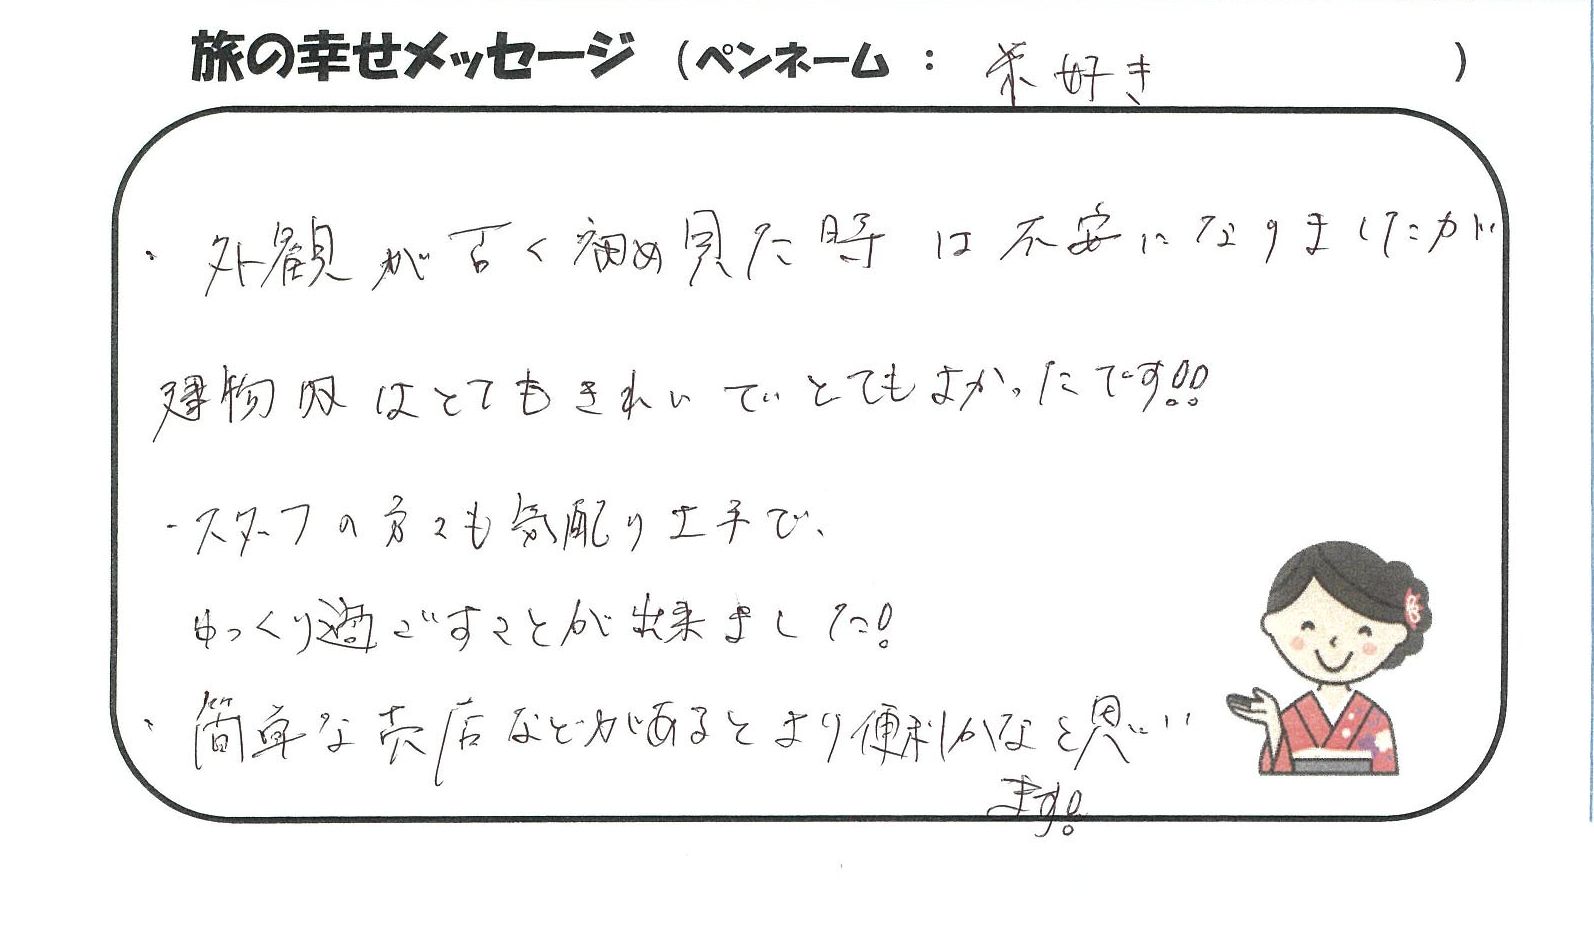 旅の幸せメッセージ (ペンネーム : 米好き )
・外観が古く初め見た時は不安になりましたが
建物内はとてもきれいでとてもよかったです!!
・スタッフの方々も気配り上手で、
ゆっくり過ごすことが出来ました!
・簡単な売店などがあるとより便利かなと思い
ます!